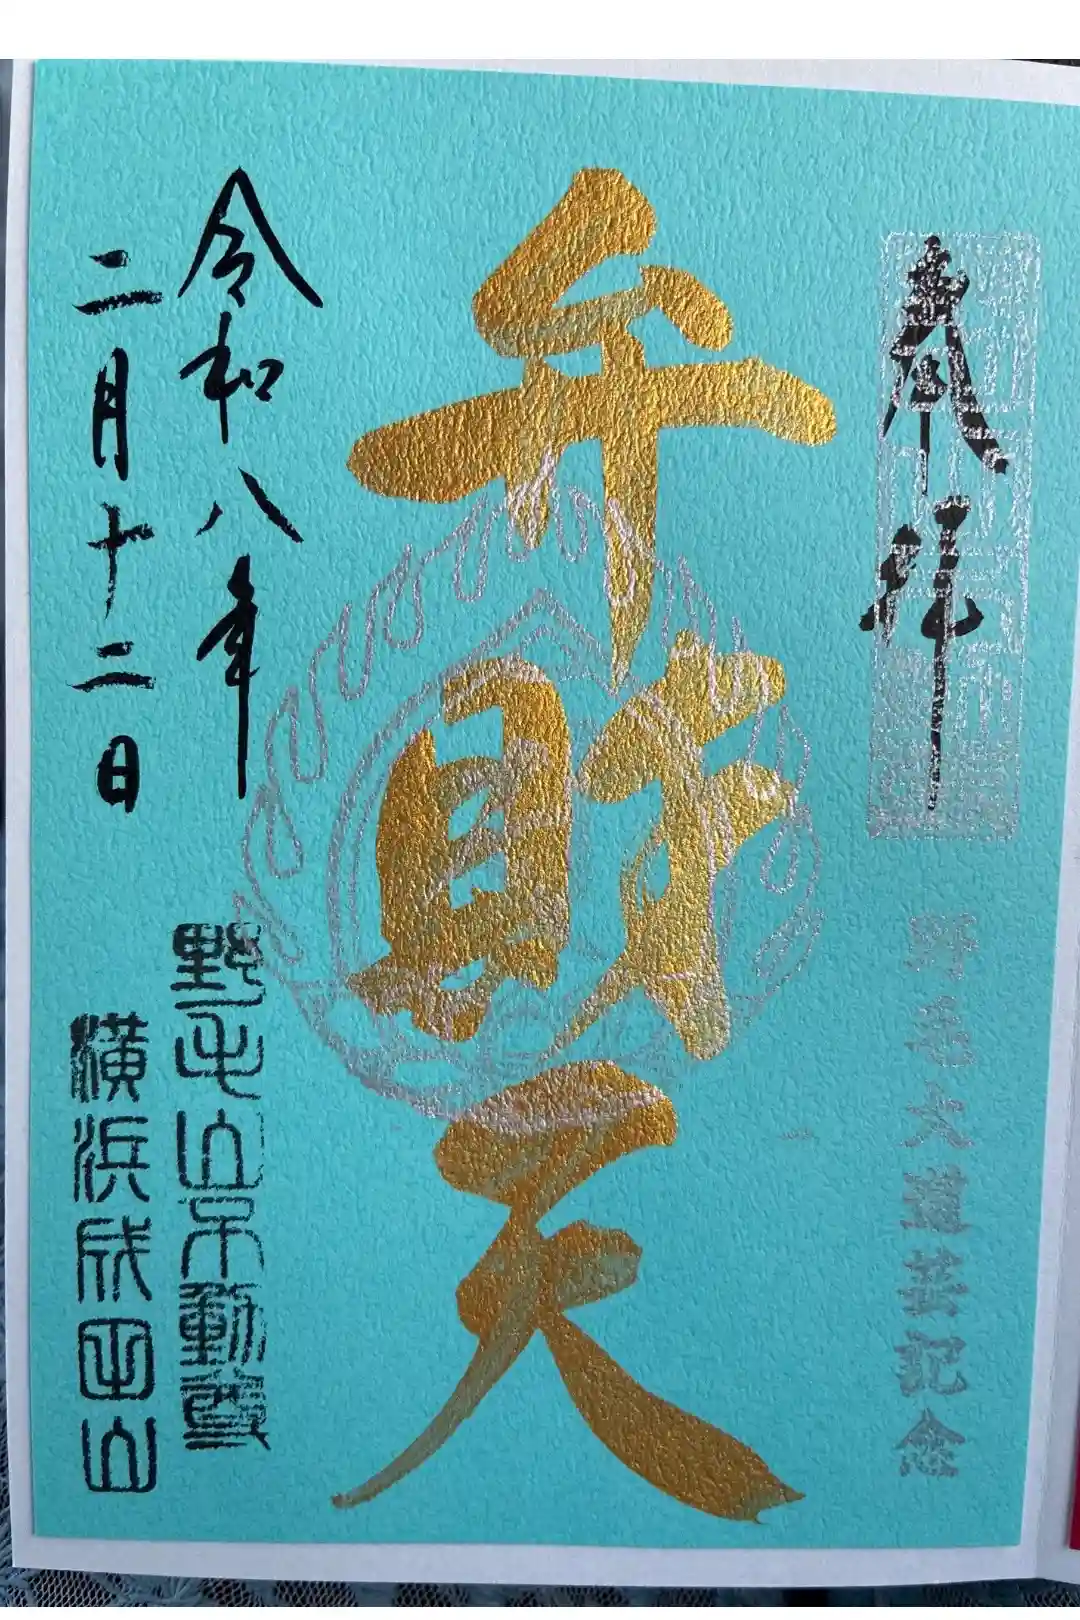 奉拝
野毛大道芸記念
弁財天
令和八年
二月十二日
野毛山不動尊
横浜成田山